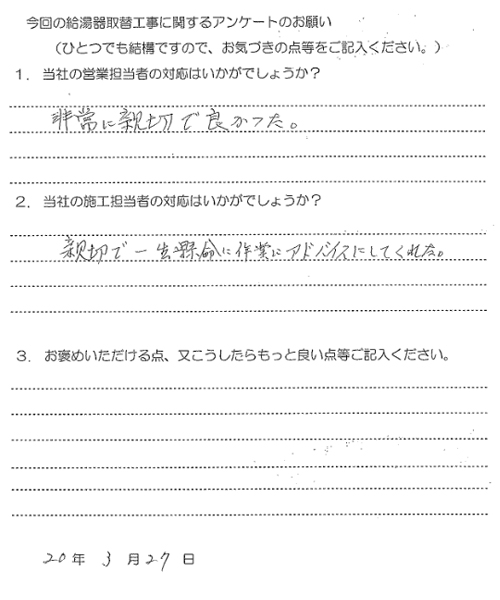 今回の給湯器取替工事に関するアンケートのお願い
（ひとつでも結構ですので、お気づきの点等をご記入ください。）
１．当社の営業担当者の対応はいかがでしょうか？
非常に親切で良かった。
２．当社の施工担当者の対応はいかがでしょうか？
親切で一生懸命に作業にアドバイスにしてくれた。
３．お褒めいただける点、又こうしたらもっと良い点等ご記入ください。
20年 3月27日